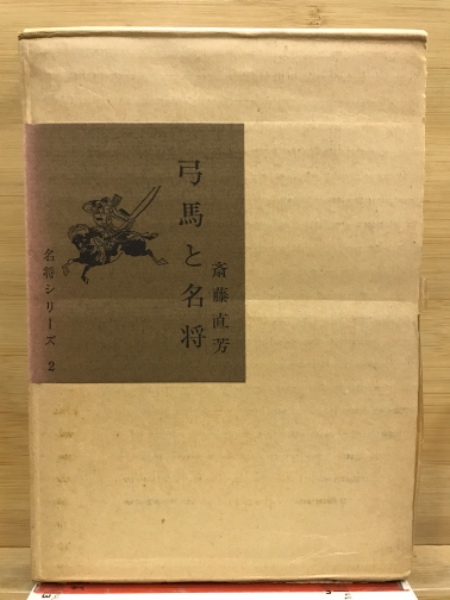 弓馬と名将
斎藤直芳
名将シリーズ 2